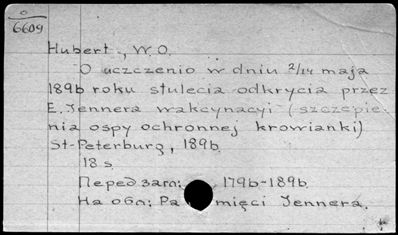 0
6609
Hubert, W.O.
O uczczenio w dniu 2/14 maja
1896 roku stulecia odkrycia przez
E. Jennera wakcynacyi (szczepie-
nia ospy ochronnej krowianki)
St-Peterburg, 1896.
18 s.
Перед загл: 1796-1896.
На обл: Pa mięci Jennera.